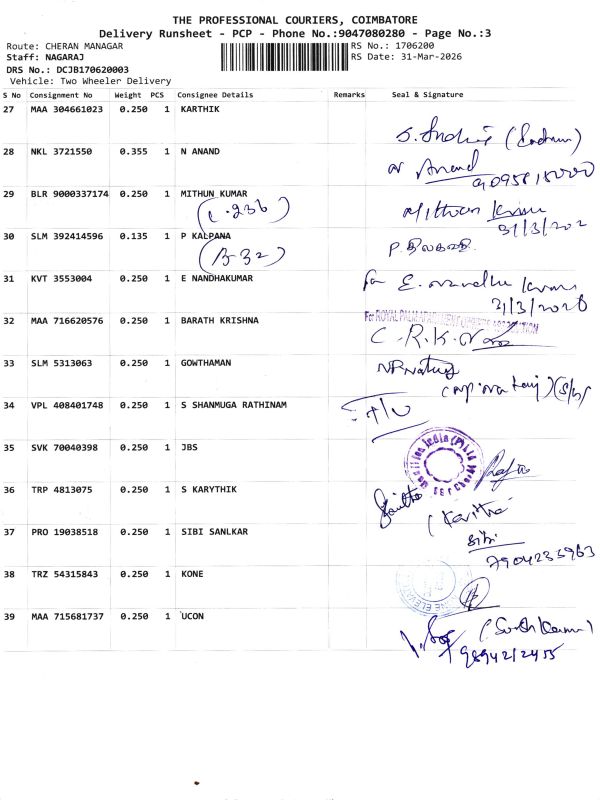 THE PROFESSIONAL COURIERS, COIMBATORE
Delivery Runsheet - PCP - Phone No.:9047080280 - Page No.:3
Route: CHERAN MANAGAR
RS No.: 1706200
Staff: NAGARAJ
RS Date: 31-Mar-2026
DRS No.: DCJB170620003
Vehicle: Two Wheeler Delivery
S No Consignment No Weight PCS Consignee Details Remarks Seal & Signature
27 MAA 304661023 0.250 1 KARTHIK
28 NKL 3721550 0.355 1 N ANAND
Anand
29 BLR 9000337174 0.250 1 MITHUN KUMAR
Mithun Kumar
31/3/202
30 SLM 392414596 0.135 1 P KALPANA
(B-32)
31 KVT 3553004 0.250 1 E NANDHAKUMAR
for E. Nandha Kumar
31/3/2026
32 MAA 716620576 0.250 1 BARATH KRISHNA
33 SLM 5313063 0.250 1 GOWTHAMAN
34 VPL 408401748 0.250 1 S SHANMUGA RATHINAM
35 SVK 70040398 0.250 1 JBS
36 TRP 4813075 0.250 1 S KARYTHIK
37 PRO 19038518 0.250 1 SIBI SANLKAR
Sibi
7904235963
38 TRZ 54315843 0.250 1 KONE
39 MAA 715681737 0.250 1 UCON
9894212455